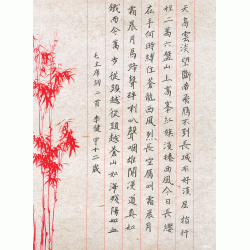 天高雲淡望斷南飛雁不到長城非好漢屈指行
程二萬六盤山上高峯紅旗漫捲西風今日長纓
在手何時縛住蒼龍西風烈長空雁叫霜晨月
霜晨月馬蹄聲碎喇叭聲咽雄關漫道真如
鐵而今邁步從頭越從頭越蒼山如海殘陽如血
毛主席詞二首 李健 十二歲